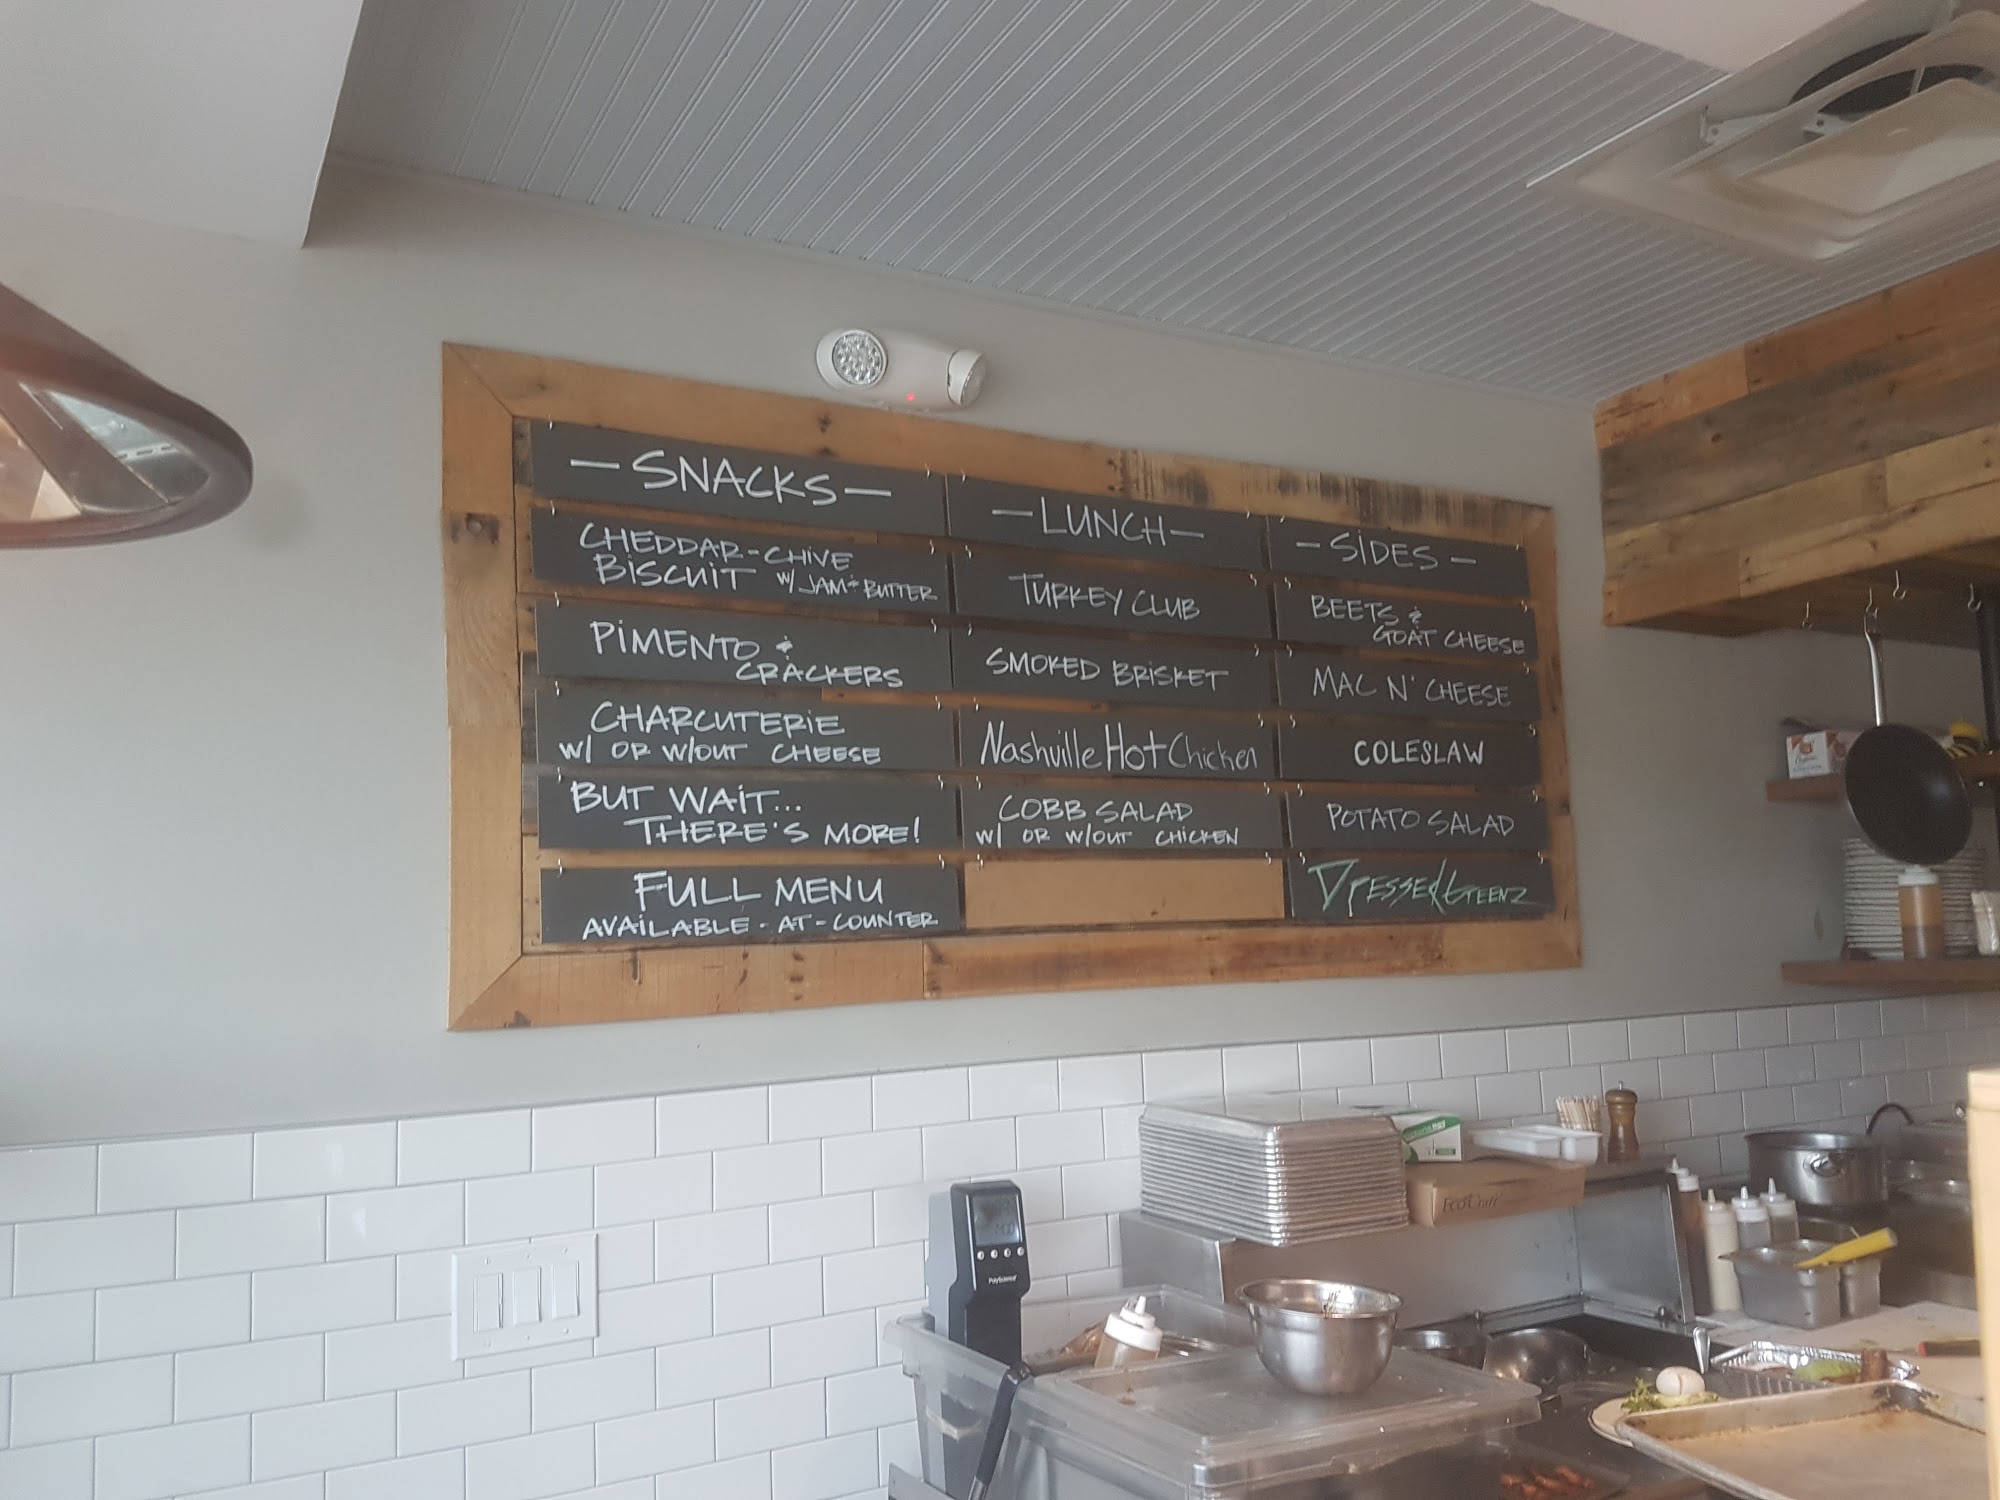 — SNACKS —
CHEDDAR-CHIVE
BISCUIT W/ JAM & BUTTER
PIMENTO &
CRACKERS
CHARCUTERIE
W/ OR W/OUT CHEESE
BUT WAIT...
THERE'S MORE!
FULL MENU
AVAILABLE - AT - COUNTER
— LUNCH —
TURKEY CLUB
SMOKED BRISKET
Nashville Hot Chicken
COBB SALAD
W/ OR W/OUT CHICKEN
— SIDES —
BEETS &
GOAT CHEESE
MAC N' CHEESE
COLESLAW
POTATO SALAD
DRESSED GREENZ
PolyScience
EcoCraft